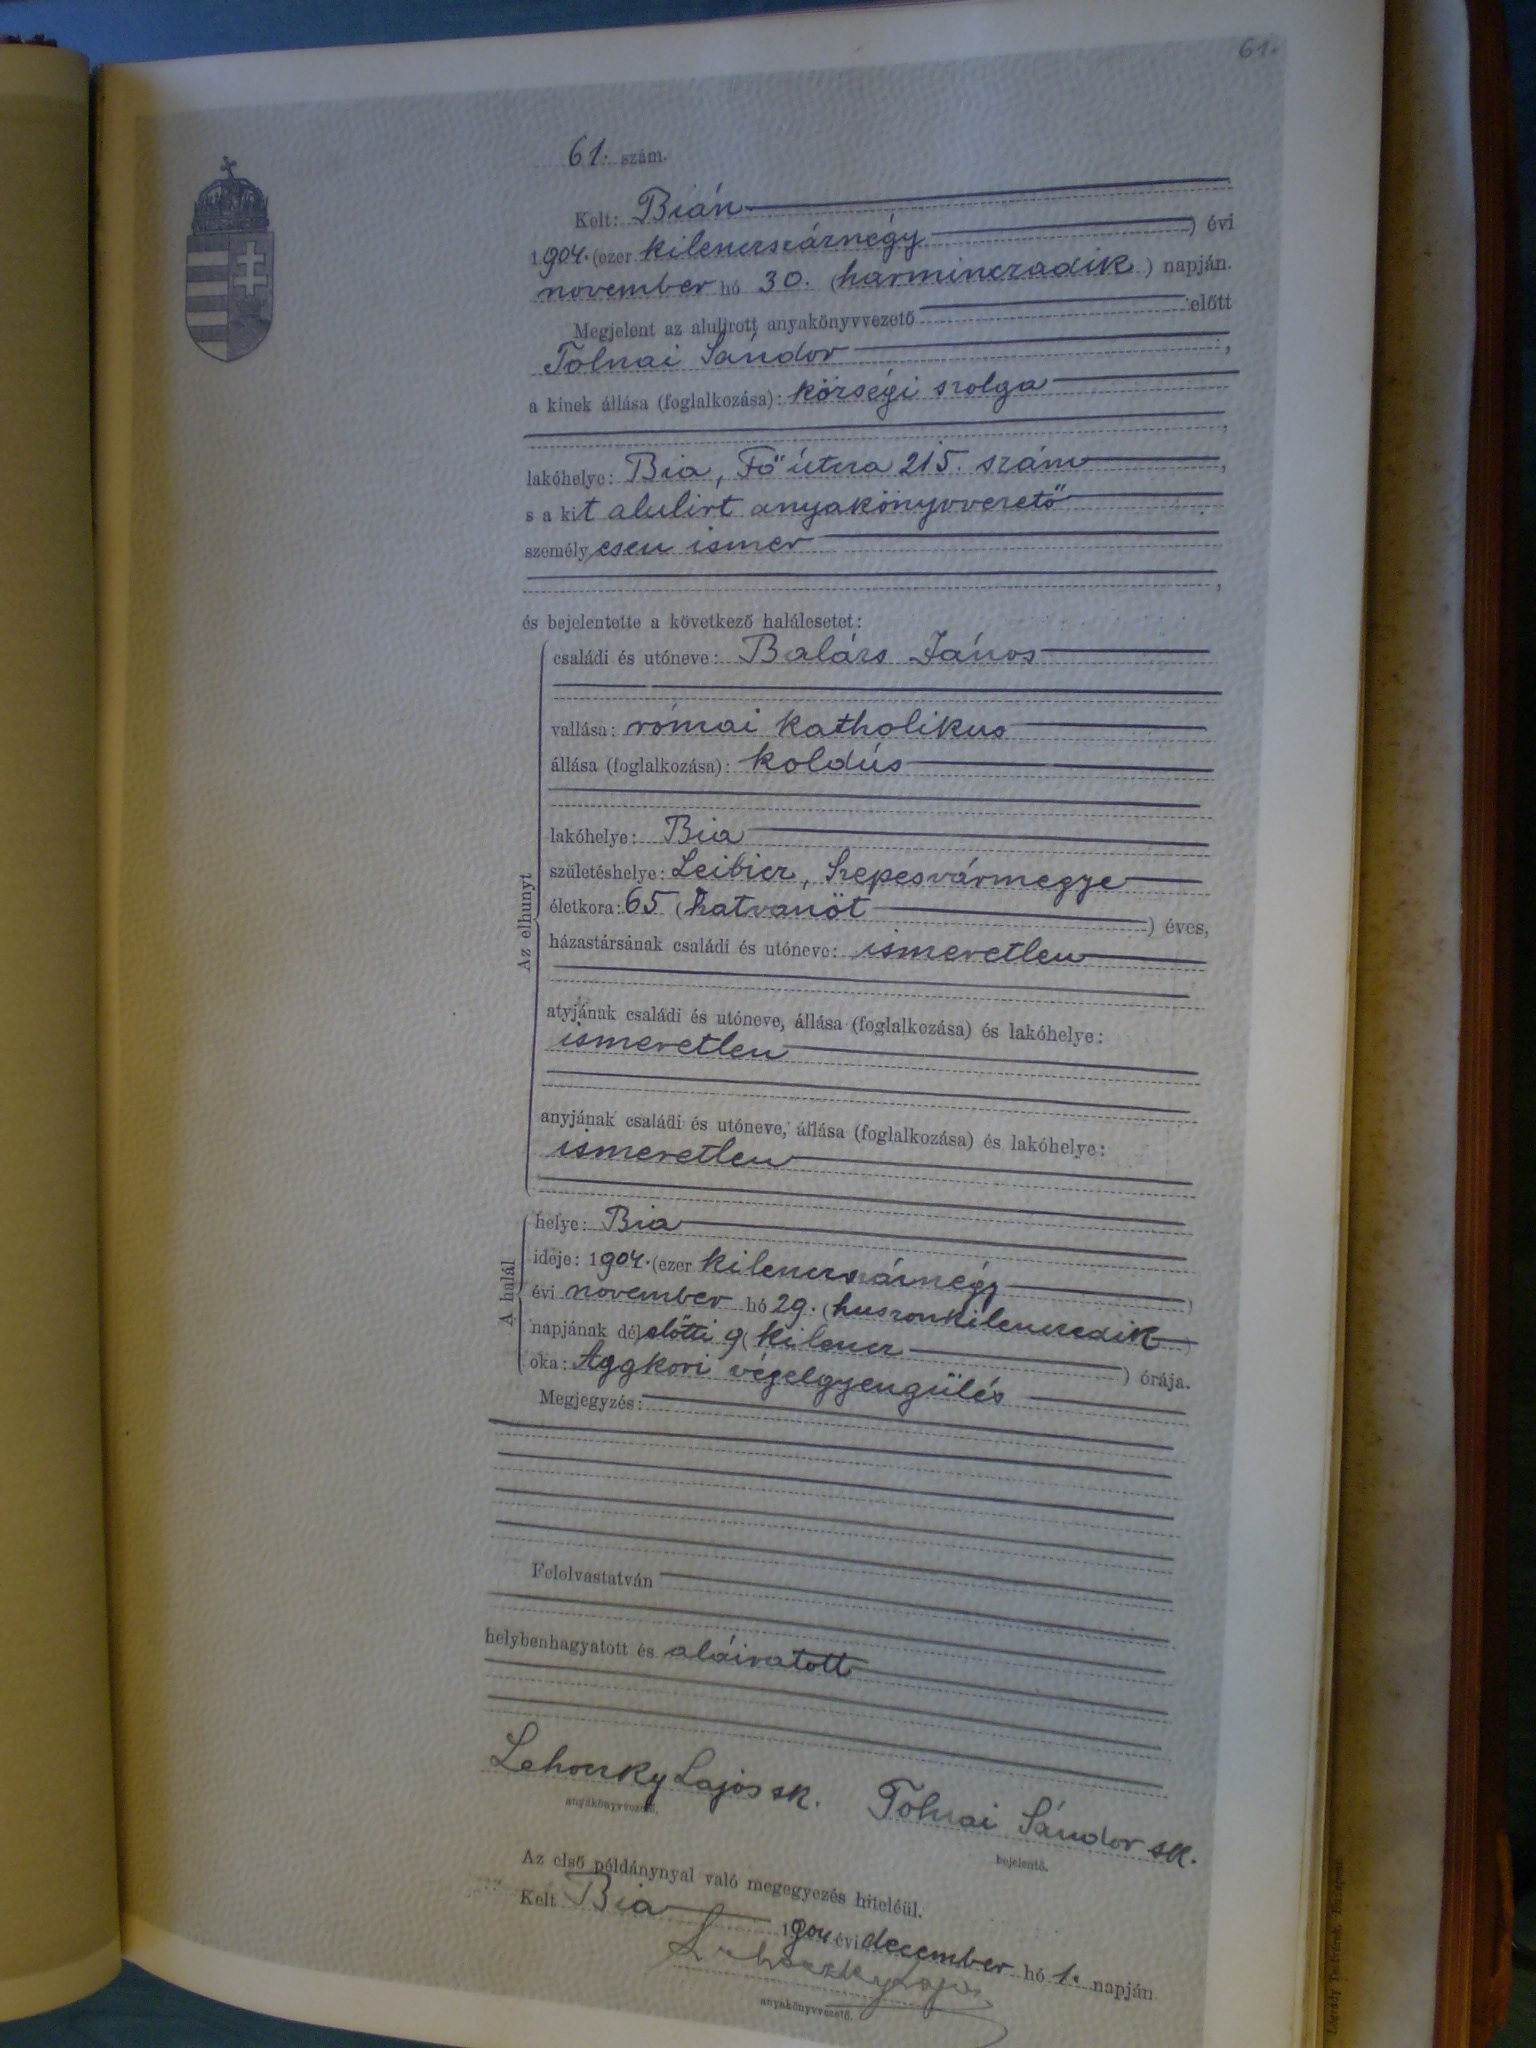 61.
61. szám.
Kelt: Bián
1904. (ezer kilenczszáznégy) évi
november hó 30. (harminczadik) napján.
Megjelent az alulirott anyakönyvvezető előtt
Tolnai Sándor,
a kinek állása (foglalkozása): községi szolga
,
lakóhelye: Bia, Fő útcza 215. szám,
s a kit alulirt anyakönyvvezető
személyesen ismer
,
és bejelentette a következő halálesetet:
Az elhunyt
családi és utóneve: Balázs János
vallása: római katholikus
állása (foglalkozása): koldús
lakóhelye: Bia
születéshelye: Leibicz, Szepesvármegye
életkora: 65 (hatvanöt) éves,
házastársának családi és utóneve: ismeretlen
atyjának családi és utóneve, állása (foglalkozása) és lakóhelye:
ismeretlen
anyjának családi és utóneve, állása (foglalkozása) és lakóhelye:
ismeretlen
A halál
helye: Bia
ideje: 1904. (ezer kilenczszáznégy)
évi november hó 29. (huszonkilenczedik)
napjának délelőtti 9 (kilencz) órája.
oka: Aggkori végelgyengülés
Megjegyzés:
Felolvastatván
helybenhagyatott és aláiratott
Lehoczky Lajos sk. Tolnai Sándor sk.
anyakönyvvezető. bejelentő.
Az első példánynyal való megegyezés hiteléül.
Kelt Bia 1904 évi december hó 1. napján
Lehoczky Lajos
anyakönyvvezető.